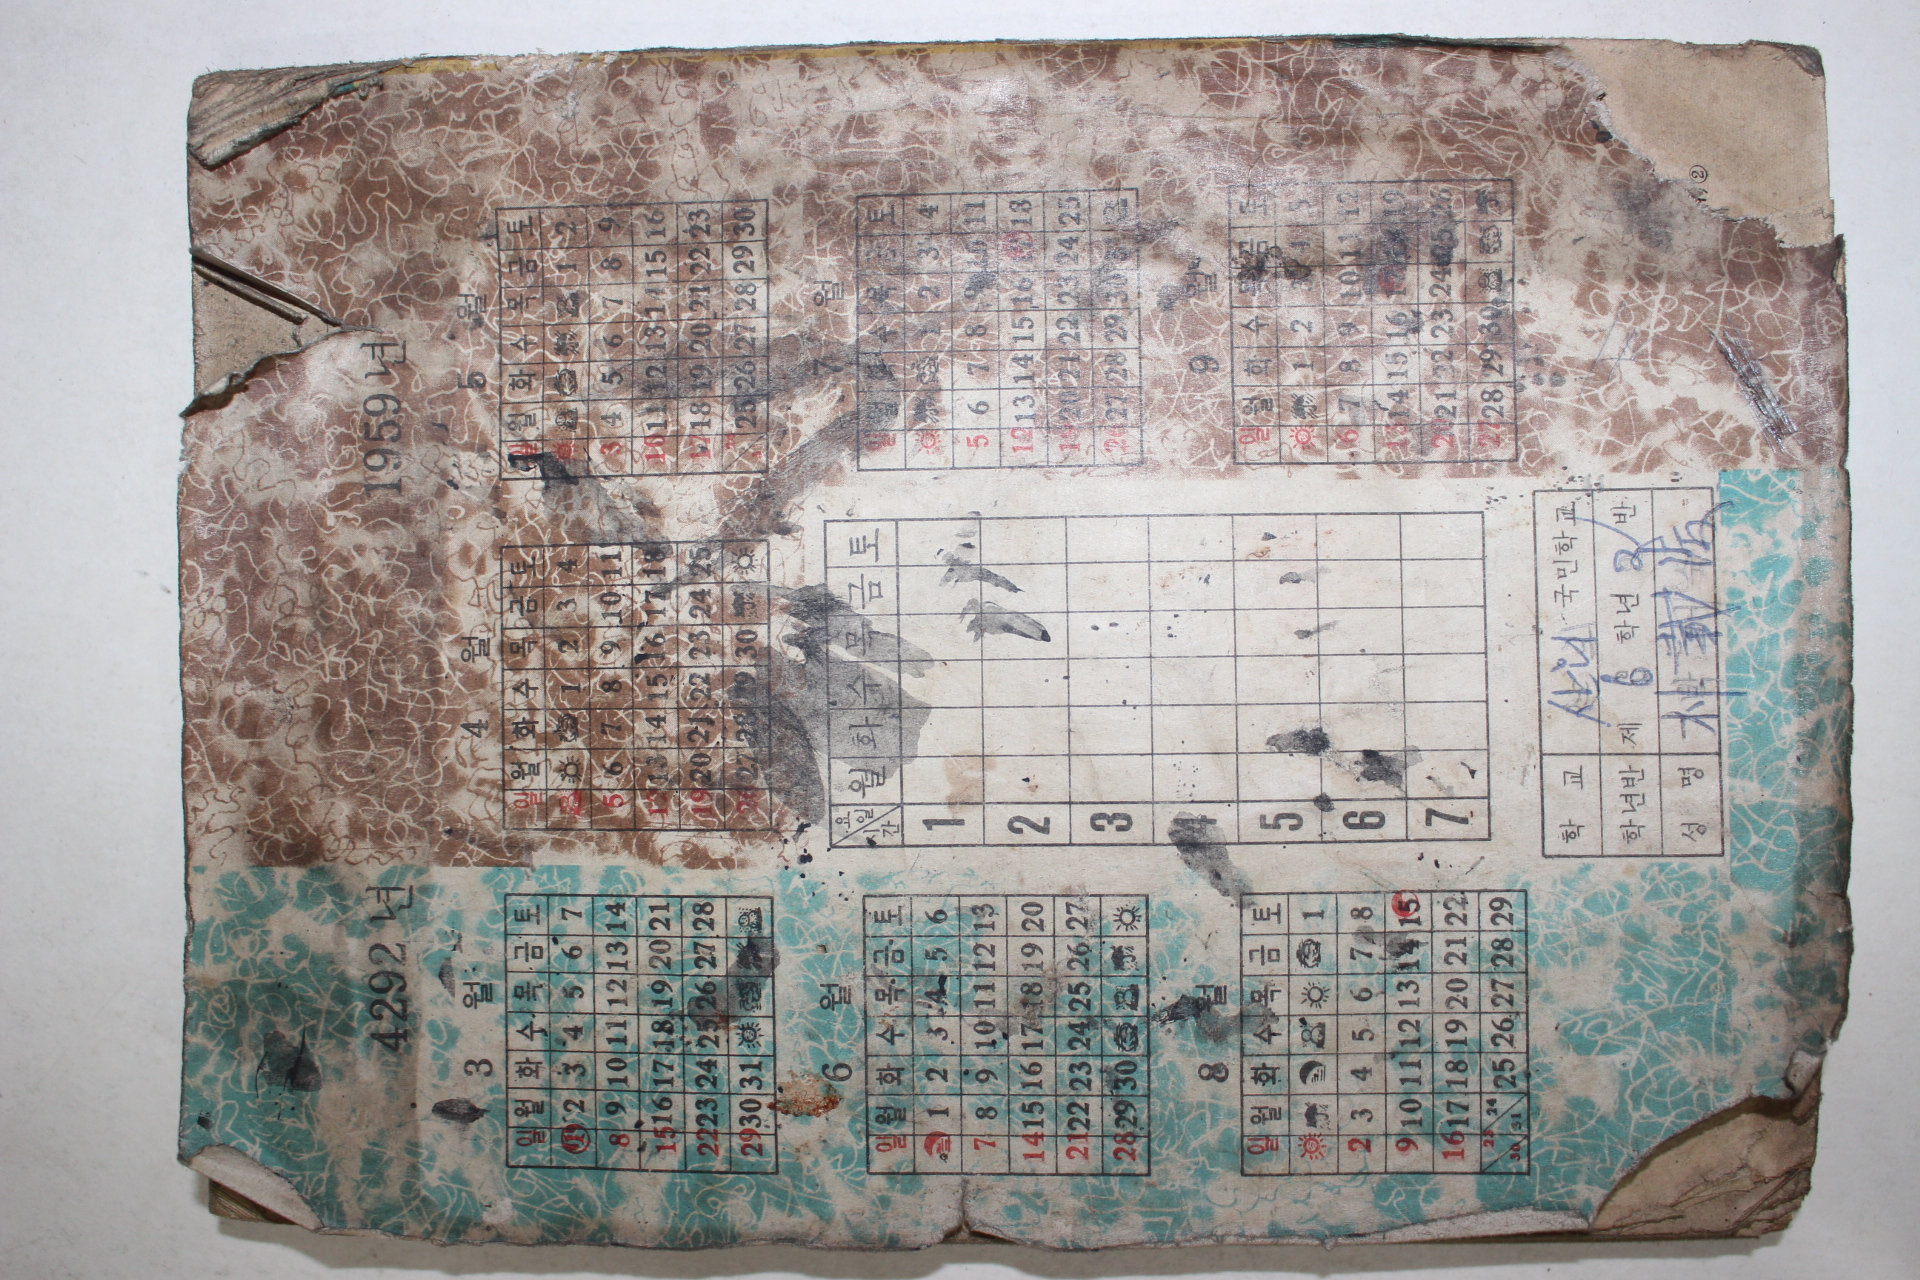 4292년 1959년
3월
일 월 화 수 목 금 토
1 2 3 4 5 6 7
8 9 10 11 12 13 14
15 16 17 18 19 20 21
22 23 24 25 26 27 28
29 30 31
4월
일 월 화 수 목 금 토
1 2 3 4
5 6 7 8 9 10 11
12 13 14 15 16 17 18
19 20 21 22 23 24 25
26 27 28 29 30
5월
일 월 화 수 목 금 토
1 2
3 4 5 6 7 8 9
10 11 12 13 14 15 16
17 18 19 20 21 22 23
25 26 27 28 29 30
6월
일 월 화 수 목 금 토
1 2 3 4 5 6
7 8 9 10 11 12 13
14 15 16 17 18 19 20
21 22 23 24 25 26 27
28 29 30
요일 시간 월 화 수 목 금 토
1
2
3
4
5
6
7
7월
일 월 화 수 목 금 토
1 2 3 4
5 6 7 8 9 10 11
12 13 14 15 16 17 18
19 20 21 22 23 24 25
26 27 28 29 30
8월
일 월 화 수 목 금 토
1
2 3 4 5 6 7 8
9 10 11 12 13 14 15
16 17 18 19 20 21 22
23/30 24/31 25 26 27 28 29
9월
일 월 화 수 목 금 토
1 2 3 4 5
6 7 8 9 10 11 12
13 14 15 16 19
20 21 22 23 24 25 26
27 28 29 30
학교 국민학교
학년반 제 6 학년 2 반
성명
②